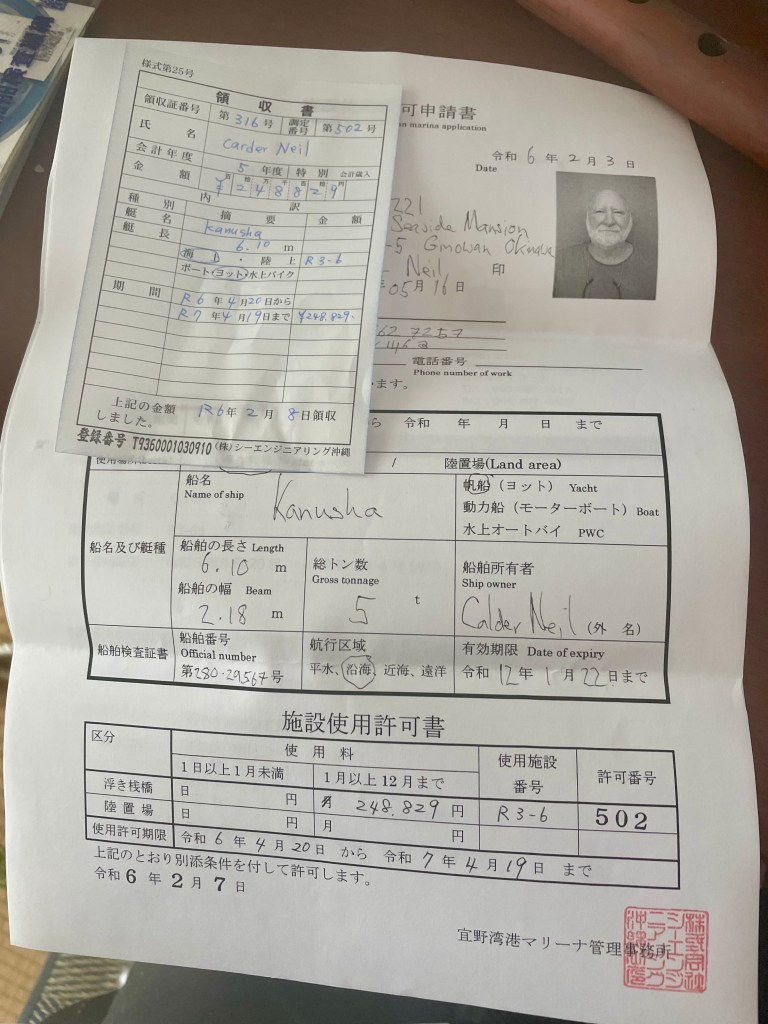 様式第25号
領収書
領収証番号 第316号 調定番号 第502号
氏名 Carder Neil
会計年度 5年度 特別 会計歳入
金額 ¥248829円
内訳
種別 摘要 金額
艇名 Kanusha
艇長 6.10 m
海上・陸上 R3-6
ボート・ヨット・水上バイク
期間 R6年4月20日から
R7年4月19日まで ¥248.829.
上記の金額 R6年2月8日領収
しました。
登録番号 T9360001030910 (株)シーエンジニアリング沖縄
可申請書
an marina application
令和6年2月3日
Date
221
Seaside Mansion
-5 Ginowan Okinawa
Neil 印
年05月16日
62 7257
電話番号
Phone number of work
います。
から 令和 年 月 日 まで
/ 陸置場(Land area)
船名及び艇種
船名
Name of ship
Kanusha
帆船(ヨット) Yacht
動力船(モーターボート) Boat
水上オートバイ PWC
船舶の長さ Length
6.10 m
船舶の幅 Beam
2.18 m
総トン数
Gross tonnage
5 t
船舶所有者
Ship owner
Calder Neil (外 名)
船舶検査証書
船舶番号
Official number
第280-29567号
航行区域
平水、沿海、近海、遠洋
有効期限 Date of expiry
令和12年1月22日まで
施設使用許可書
区分 使用料 使用施設番号 許可番号
1日以上1月未満 1月以上12月まで
浮き桟橋 日 円 月 248.829円 R3-6 502
陸置場 日 円 月 円
使用許可期限 令和6年4月20日 から 令和7年4月19日 まで
上記のとおり別添条件を付して許可します。
令和6年2月7日
宜野湾港マリーナ管理事務所